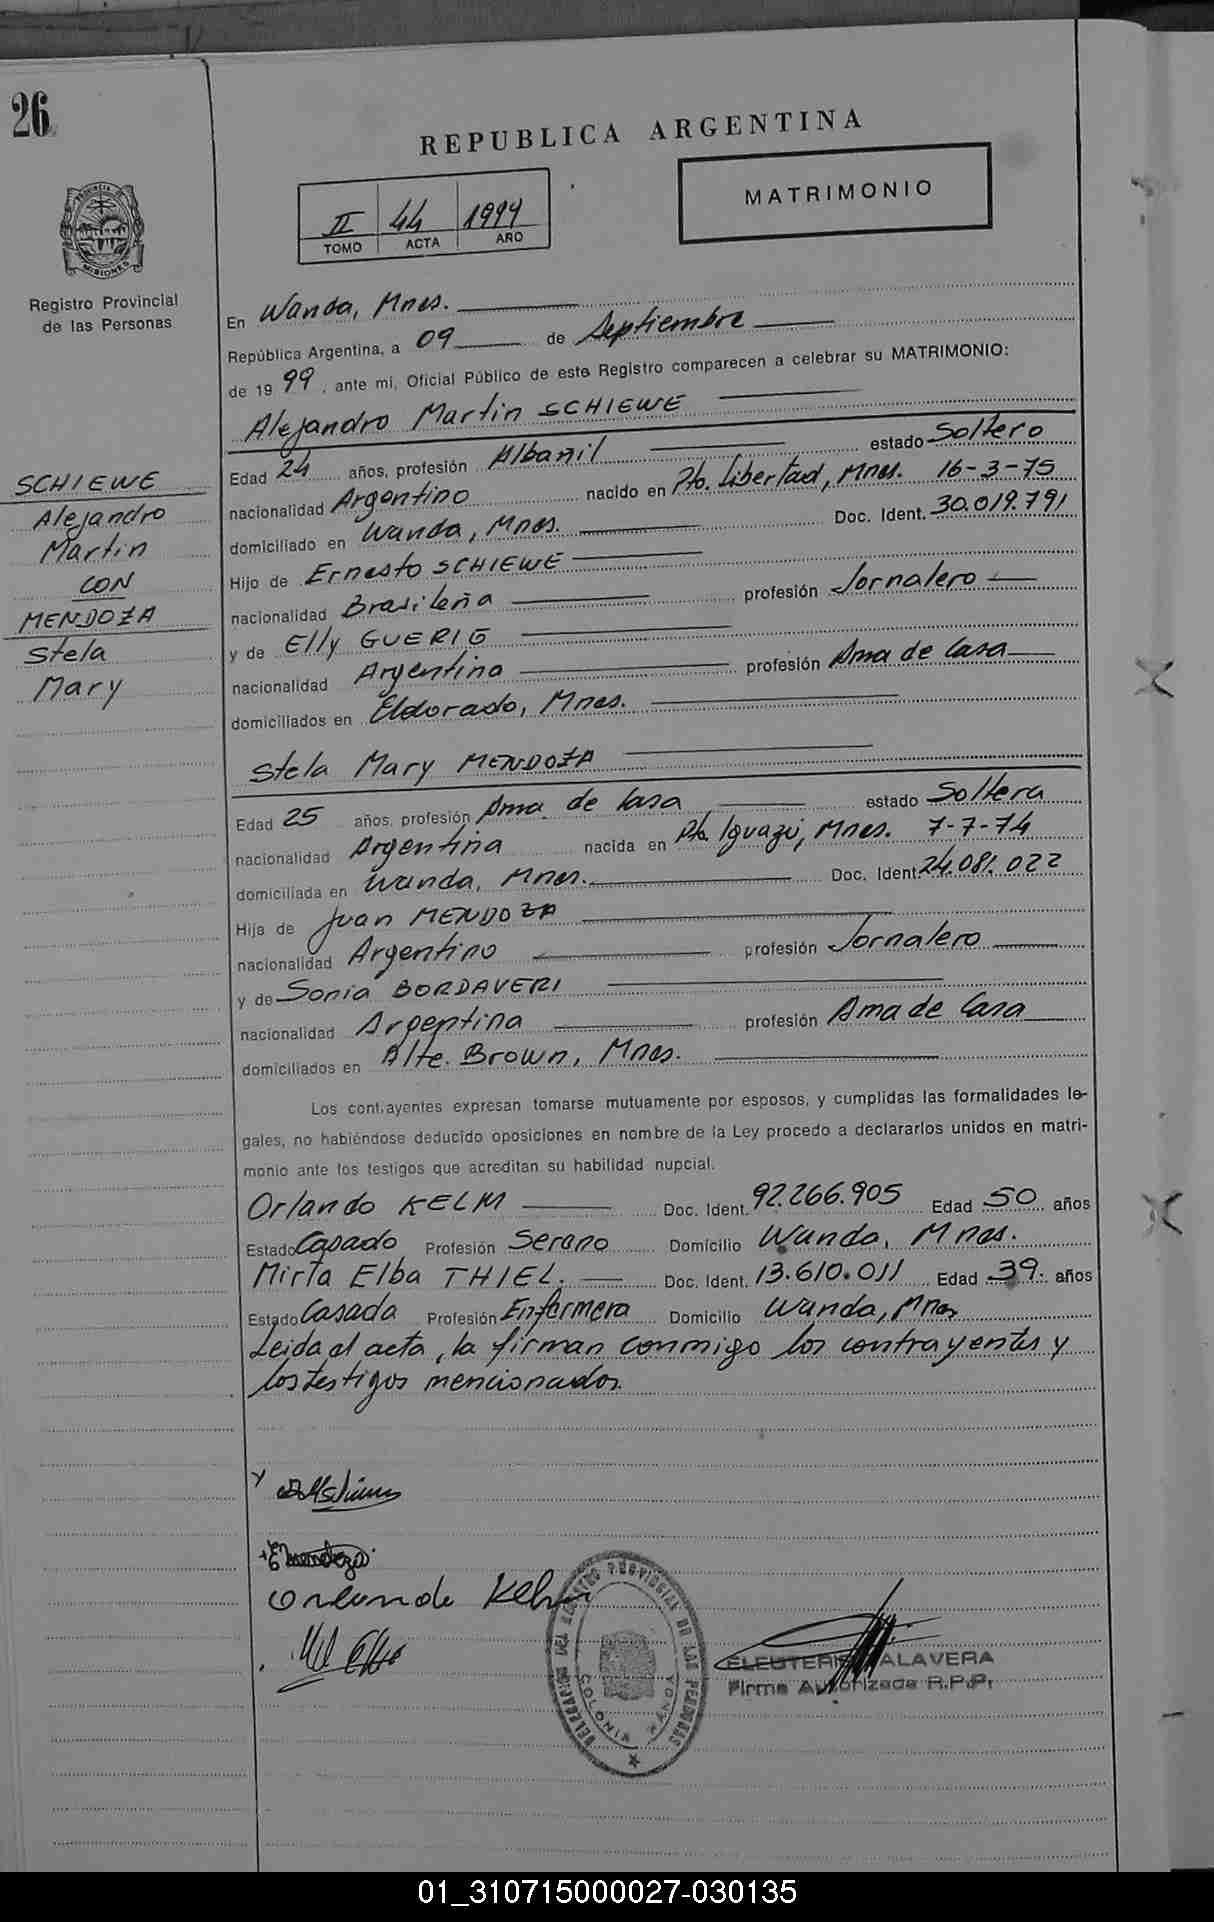 26
PROVINCIA DE
MISIONES
Registro Provincial
de las Personas
REPUBLICA ARGENTINA
II 44 1999
TOMO ACTA AÑO
MATRIMONIO
SCHIEWE
Alejandro
Martin
CON
MENDOZA
Stela
Mary
En Wanda, Mnes.
República Argentina, a 09 de Septiembre
de 1999, ante mi, Oficial Público de este Registro comparecen a celebrar su MATRIMONIO:
Alejandro Martin SCHIEWE
Edad 24 años, profesión Albañil estado Soltero
nacionalidad Argentino nacido en Pto. Libertad, Mnes. 16-3-75
domiciliado en Wanda, Mnes. Doc. Ident. 30.019.791
Hijo de Ernesto SCHIEWE
nacionalidad Brasileña profesión Jornalero
y de Elly GUERIG
nacionalidad Argentina profesión Ama de Casa
domiciliados en Eldorado, Mnes.
Stela Mary MENDOZA
Edad 25 años, profesión Ama de Casa estado Soltera
nacionalidad Argentina nacida en Pto. Iguazú, Mnes. 7-7-74
domiciliada en Wanda, Mnes. Doc. Ident 24.081.022
Hija de Juan MENDOZA
nacionalidad Argentino profesión Jornalero
y de Sonia BORDAVERI
nacionalidad Argentina profesión Ama de Casa
domiciliados en Alte. Brown, Mnes.
Los contrayentes expresan tomarse mutuamente por esposos, y cumplidas las formalidades le-
gales, no habiéndose deducido oposiciones en nombre de la Ley procedo a declararlos unidos en matri-
monio ante los testigos que acreditan su habilidad nupcial.
Orlando KELM Doc. Ident. 92.266.905 Edad 50 años
Estado Casado Profesión Sereno Domicilio Wanda, Mnes.
Mirta Elba THIEL. Doc. Ident. 13.610.011 Edad 39 años
Estado Casada Profesión Enfermera Domicilio Wanda, Mnes
Leida el acta, la firman conmigo los contrayentes y
los testigos mencionados.
Orlando Kelm
DELEGACION DEL REGISTRO PROVINCIAL DE LAS PERSONAS
COLONIA WANDA
ELEUTERIO TALAVERA
Firma Autorizada R.P.P.
01_310715000027-030135